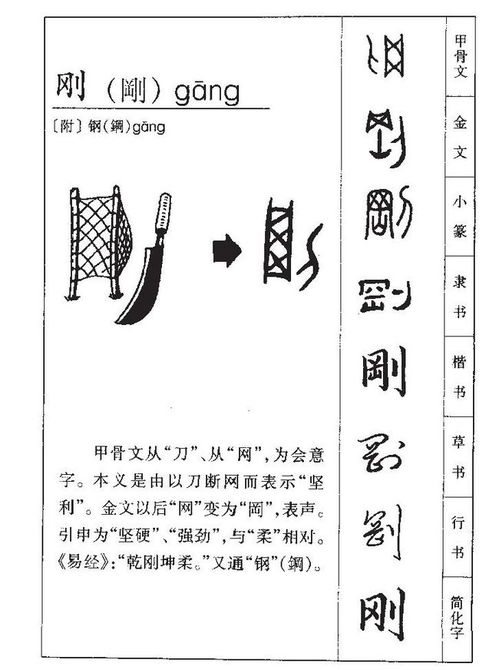 刚（剛）gāng
〔附〕钢（鋼）gāng
甲骨文从“刀”、从“网”，为会意
字。本义是由以刀断网而表示“坚
利”。金文以后“网”变为“岡”，表声。
引申为“坚硬”、“强劲”，与“柔”相对。
《易经》：“乾刚坤柔。”又通“钢”（鋼）。
剛 甲骨文
剛 金文
剛 小篆
剛 隶书
剛 楷书
剛 草书
剛 行书
刚 简化字